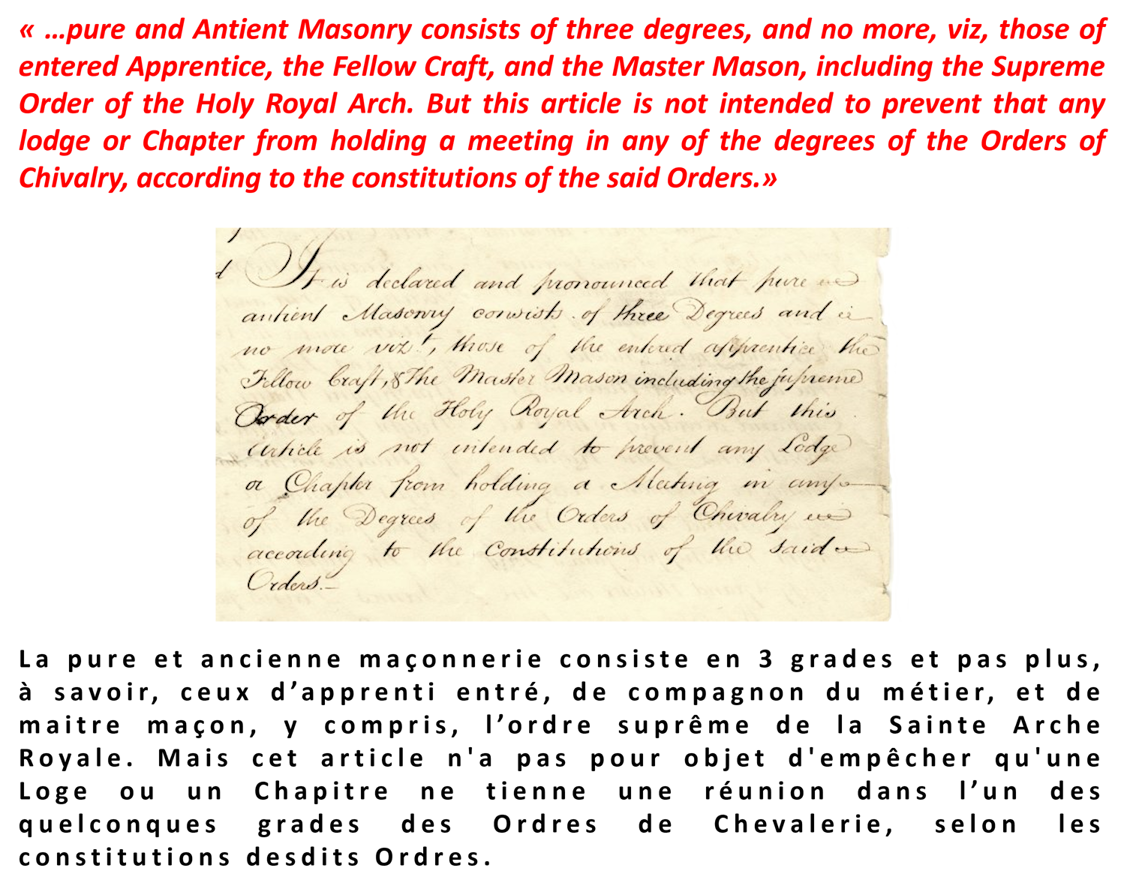 « …pure and Antient Masonry consists of three degrees, and no more, viz, those of
entered Apprentice, the Fellow Craft, and the Master Mason, including the Supreme
Order of the Holy Royal Arch. But this article is not intended to prevent that any
lodge or Chapter from holding a meeting in any of the degrees of the Orders of
Chivalry, according to the constitutions of the said Orders.»
It is declared and pronounced that pure
antient Masonry consists of three Degrees and
no more vizt, those of the entered apprentice the
Fellow Craft, & the Master Mason including the supreme
Order of the Holy Royal Arch. But this
Article is not intended to prevent any Lodge
or Chapter from holding a Meeting in any
of the Degrees of the Orders of Chivalry
according to the Constitutions of the said
Orders.—
La pure et ancienne maçonnerie consiste en 3 grades et pas plus,
à savoir, ceux d’apprenti entré, de compagnon du métier, et de
maitre maçon, y compris, l’ordre suprême de la Sainte Arche
Royale. Mais cet article n'a pas pour objet d'empêcher qu'une
Loge ou un Chapitre ne tienne une réunion dans l’un des
quelconques grades des Ordres de Chevalerie, selon les
constitutions desdits Ordres.